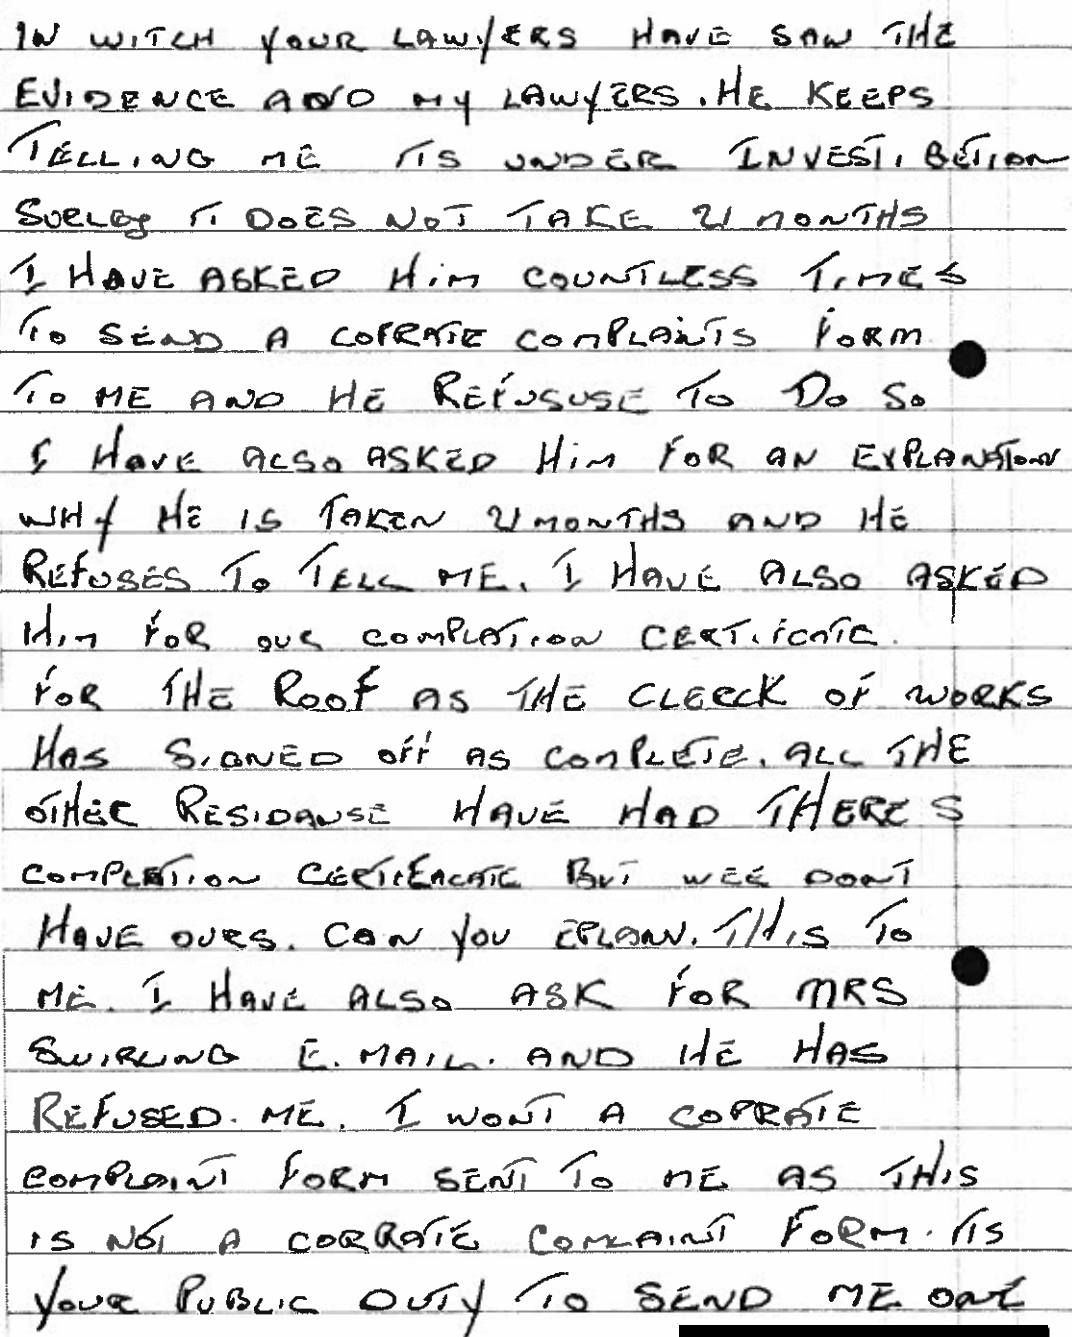 IN WITCH YOUR LAWYERS HAVE SAW THE
EVIDENCE AND MY LAWYERS. HE KEEPS
TELLING ME ITS UNDER INVESTIGETION
SURLEY IT DOES NOT TAKE 21 MONTHS
I HAVE ASKED HIM COUNTLESS TIMES
TO SEND A COPRATE COMPLAINTS FORM
TO ME AND HE REFUSUSE TO DO SO
I HAVE ALSO ASKED HIM FOR AN EXPLANATION
WHY HE IS TAKEN 21 MONTHS AND HE
REFUSES TO TELL ME. I HAVE ALSO ASKED
HIM FOR OUR COMPLATION CERTIFICATE.
FOR THE ROOF AS THE CLERCK OF WORKS
HAS SIGNED OFF AS COMPLETE. ALL THE
OTHER RESIDANSE HAVE HAD THERE'S
COMPLETION BUT WEE DONT
HAVE OURS. CAN YOU EPLANN. THIS TO
ME. I HAVE ALSO ASK FOR MRS
SWIRLING E.MAIL. AND HE HAS
REFUSED. ME. I WONT A COPRATE
COMPLAINT FORM SENT TO ME AS THIS
IS NOT A CORRATE COMLAINT FORM. ITS
YOUR PUBLIC DUTY TO SEND ME ONE